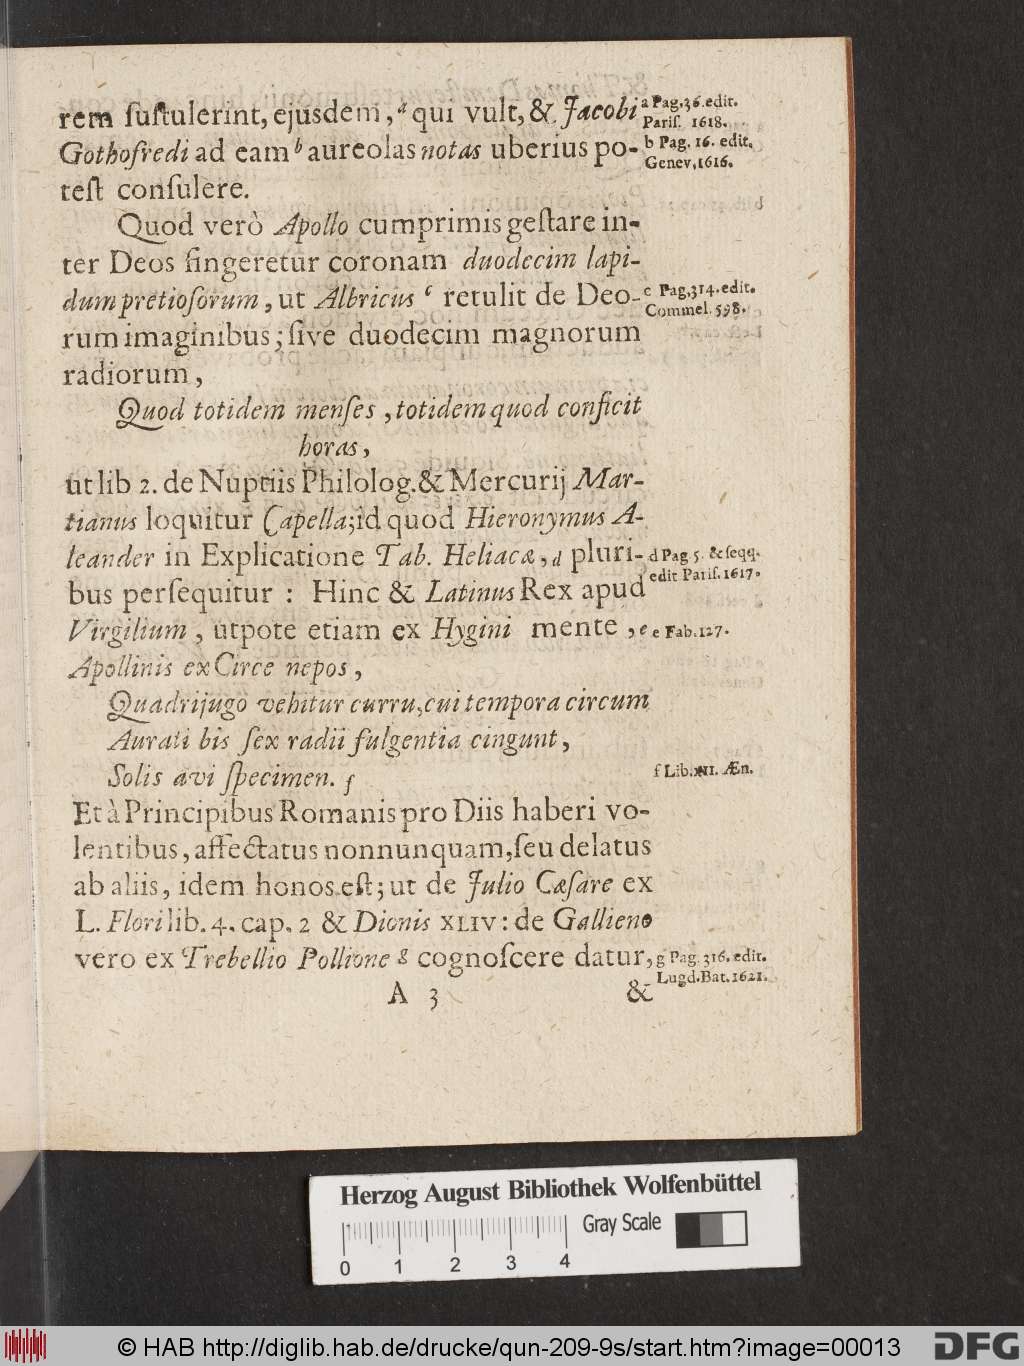 rem ſuſtulerint, ejusdem, a qui vult, & Jacobi
a Pag. 36. edit.
Pariſ. 1618.
Gothofredi ad eam b aureolas notas uberius po-
b Pag. 16. edit.
Genev. 1616.
teſt conſulere.
Quod verò Apollo cumprimis geſtare in-
ter Deos fingeretur coronam duodecim lapi-
dum pretioſorum, ut Albricus c retulit de Deo-
c Pag. 314. edit.
Commel. 598.
rum imaginibus; ſive duodecim magnorum
radiorum,
Quod totidem menſes, totidem quod conficit
horas,
ut lib 2. de Nuptiis Philolog. & Mercurij Mar-
tianus loquitur Capella; id quod Hieronymus A-
leander in Explicatione Tab. Heliacæ, d pluri-
d Pag 5. & ſeqq.
edit Pariſ. 1617.
bus perſequitur : Hinc & Latinus Rex apud
Virgilium, utpote etiam ex Hygini mente, e
e Fab. 127.
Apollinis ex Circe nepos,
Quadrijugo vehitur curru, cui tempora circum
Aurati bis ſex radii fulgentia cingunt,
Solis avi ſpecimen. f
f Lib. XII. Æn.
Et à Principibus Romanis pro Diis haberi vo-
lentibus, affectatus nonnunquam, ſeu delatus
ab aliis, idem honos eſt; ut de Julio Cæſare ex
L. Flori lib. 4. cap. 2 & Dionis XLIV: de Gallieno
vero ex Trebellio Pollione g cognoſcere datur,
g Pag. 316. edit.
Lugd. Bat. 1621.
A 3
&
Herzog August Bibliothek Wolfenbüttel
Gray Scale
0 1 2 3 4
© HAB http://diglib.hab.de/drucke/qun-209-9s/start.htm?image=00013
DFG